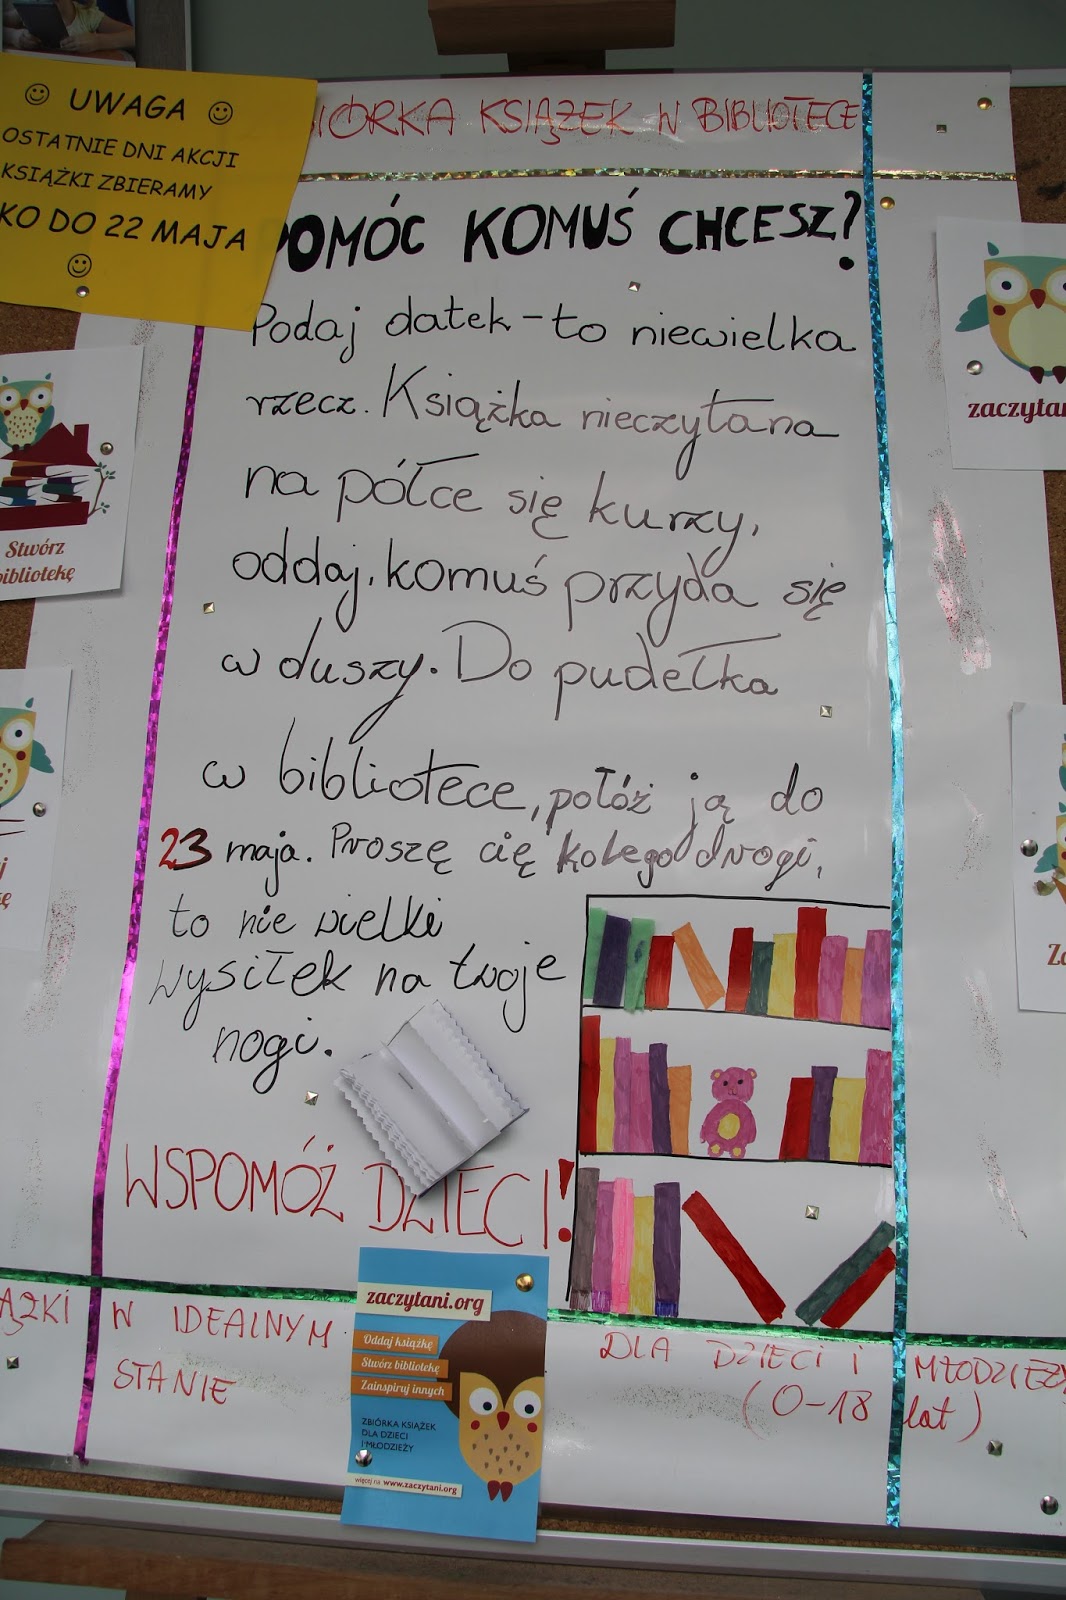 UWAGA
OSTATNIE DNI AKCJI
KSIĄŻKI ZBIERAMY
KO DO 22 MAJA
IÓRKA KSIĄŻEK W BIBLIOTECE
POMÓC KOMUŚ CHCESZ?
Podaj datek - to niewielka
rzecz. Książka nieczytana
na półce się kurzy,
oddaj, komuś przyda się
w duszy. Do pudełka
w bibliotece, połóż ją do
23 maja. Proszę cię kolego drogi,
to nie wielki
wysiłek na twoje
nogi.
WSPOMÓŻ DZIECI!
Stwórz
bibliotekę
zaczytan
ĄŻKI W IDEALNYM
STANIE
DLA DZIECI i MŁODZIEŻY
(0-18 lat)
zaczytani.org
Oddaj książkę
Stwórz bibliotekę
Zainspiruj innych
ZBIÓRKA KSIĄŻEK
DLA DZIECI
I MŁODZIEŻY
więcej na www.zaczytani.org